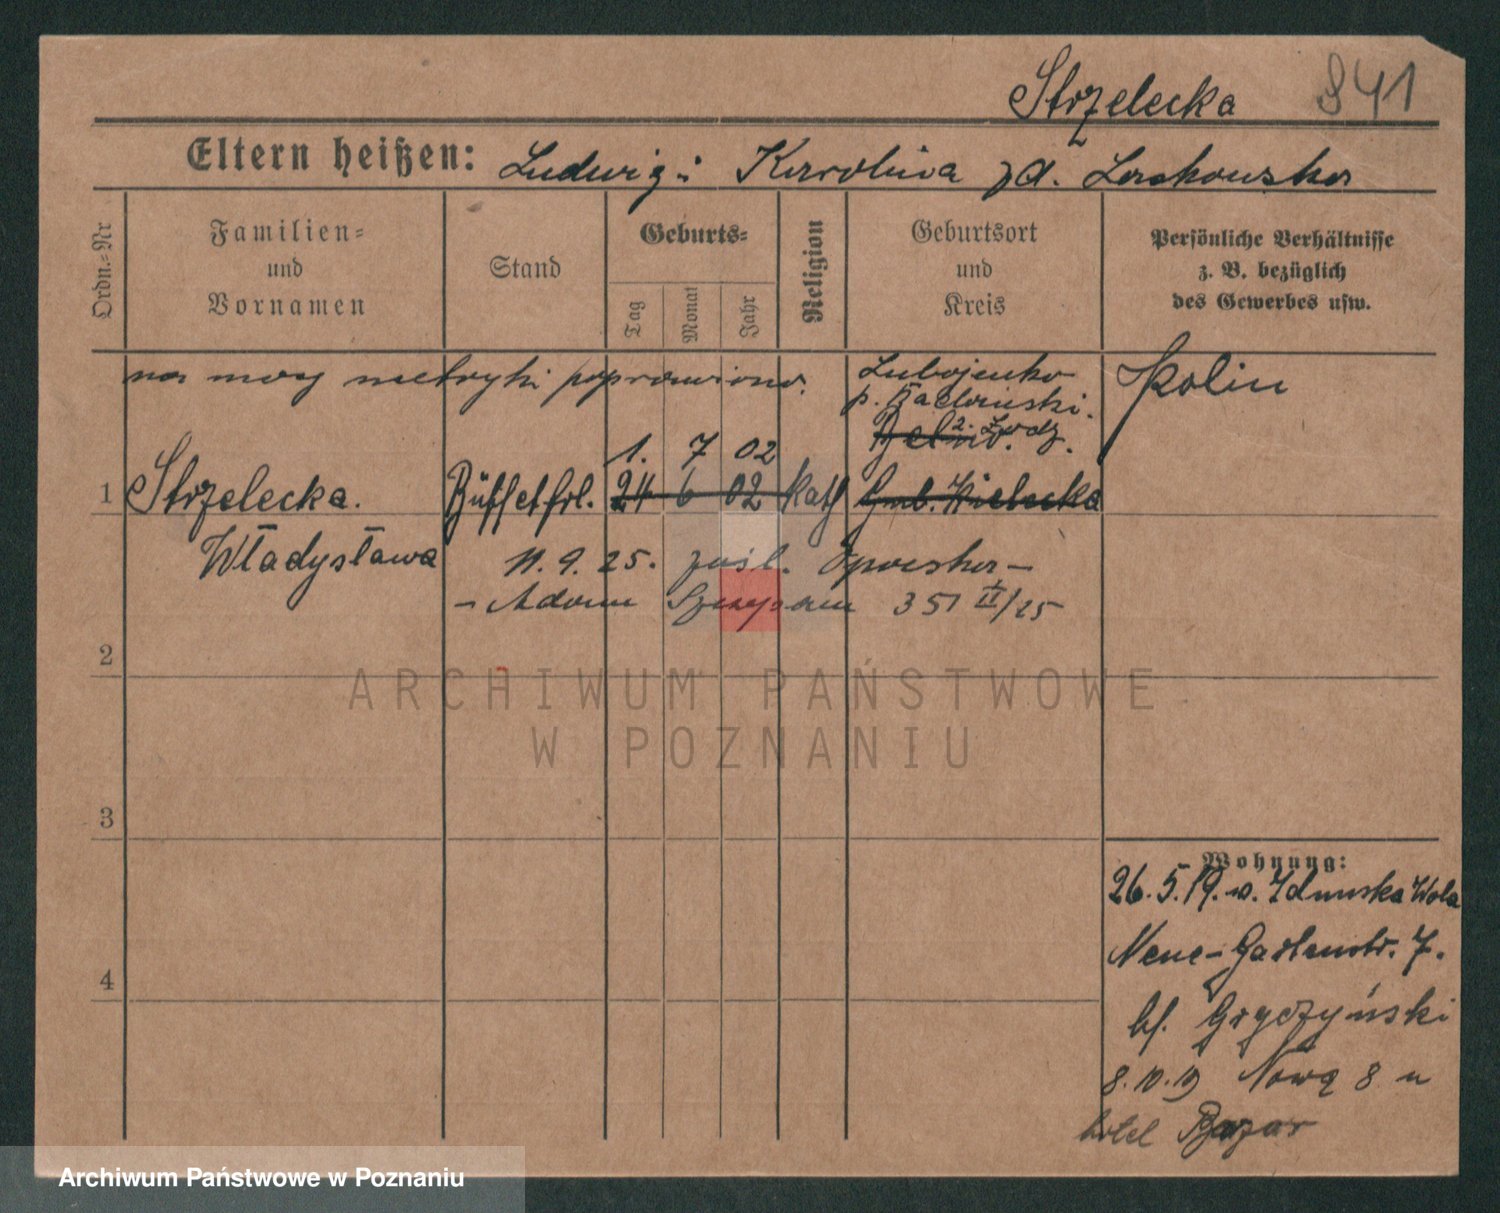 Strzelecka 841
Eltern heißen: Ludwig i Karolina zd. Laskowska
Ordn.-Nr
Familien- und Vornamen
Stand
Geburts-
Tag
Monat
Jahr
Religion
Geburtsort und Kreis
Persönliche Verhältnisse
z. B. bezüglich
des Gewerbes usw.
na mocy metryki poprawiono.
p.
Łodz.
1. 7 02
1 Strzelecka. Büffetfrl. 24 6 02 kath Gmb.
Władysława
11. 9. 25. zaśl.
Adam 351 II/25
2
3
4
Wohnung:
26. 5. 19. v. Zdunska Wola
Neue-Gartenstr. 7.
bf. Gryczyński
8.10.19 Nowa 8 u
hotel Bazar
ARCHIWUM PAŃSTWOWE
W POZNANIU
Archiwum Państwowe w Poznaniu